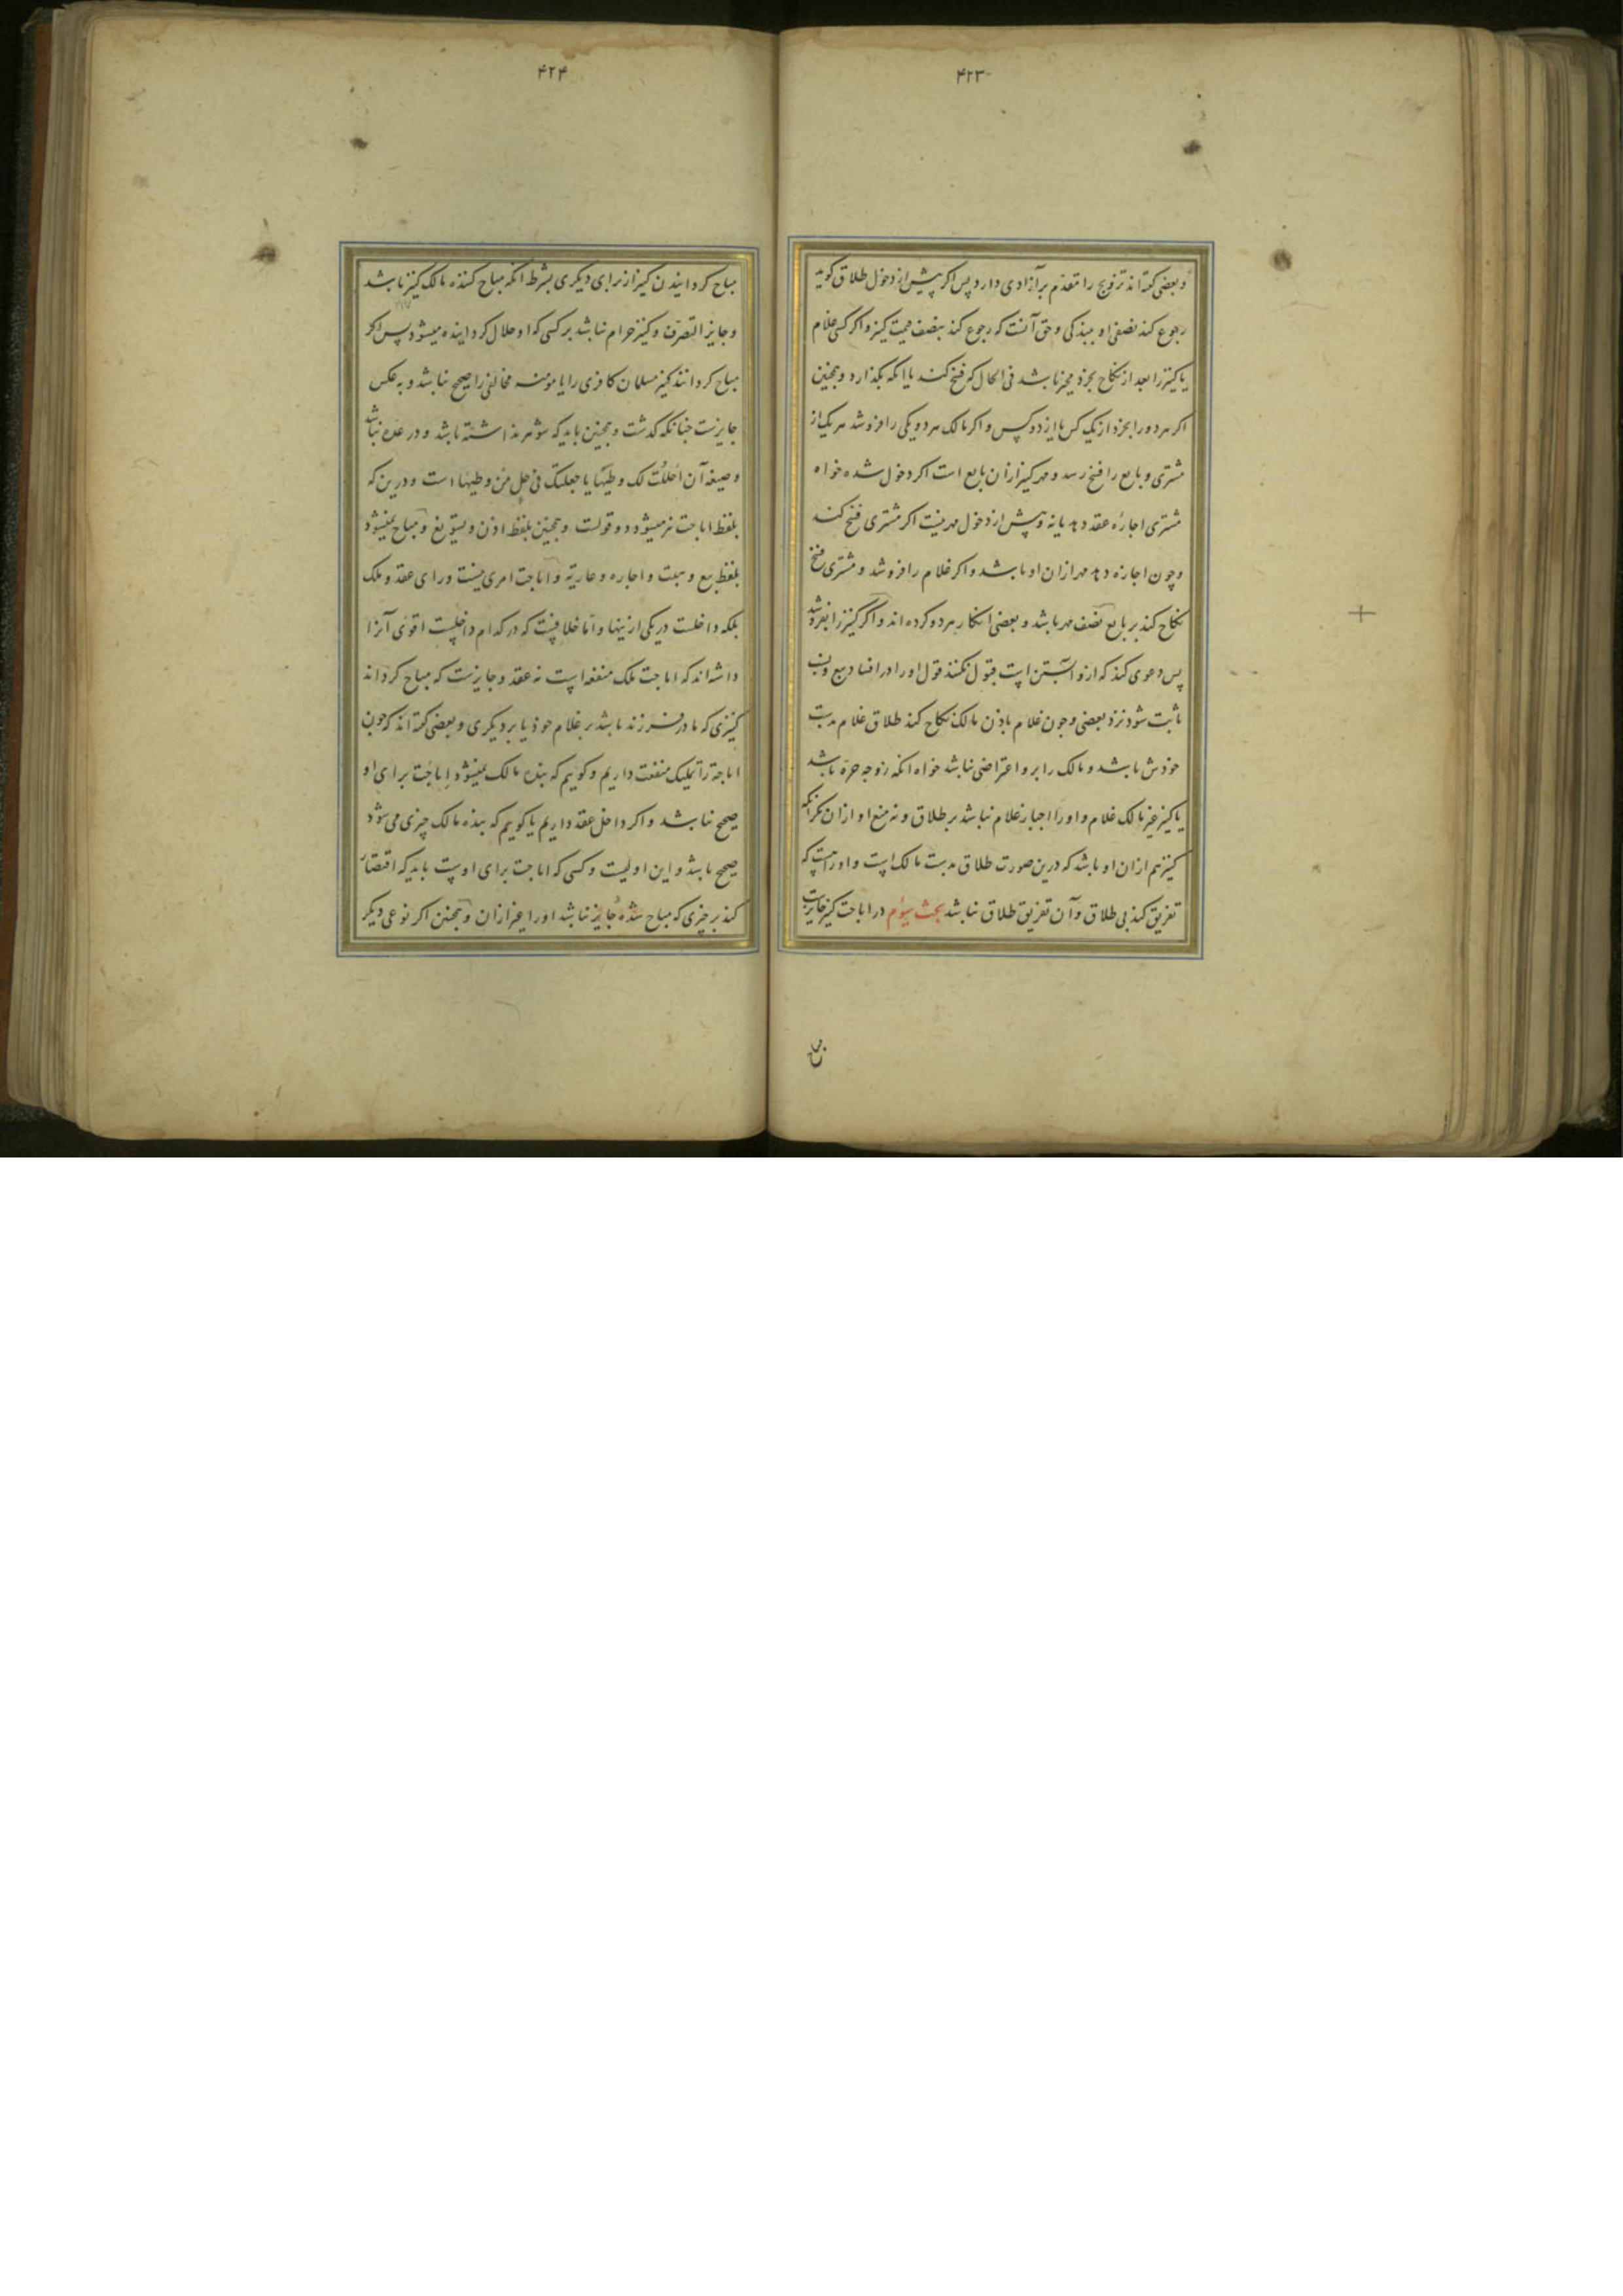 ۴۲۳
و بعضی کفته اند تزویج را مقدم بر آزادی دارد پس اکر پیش از دخول طلاق کوید
رجوع کند نصفی او ببندکی و حق آنست که رجوع کند بنصف قیمت کنیز و اکر کسی غلام
یا کنیز را بعد از نکاح بخرد مخیر باشد فی الحال که فسخ کند یا انکه بکذارد و همچنین
اکر هر دو را بخرد از یک کس یا از دو کس و اکر مالک هر دو یکی را فروشد هر یک از
مشتری و بایع را فسخ رسد و مهر کنیز ازان بایع است اکر دخول شده خواه
مشتری اجازه عقد دهد یا نه و پیش از دخول مهر نیست اکر مشتری فسخ کند
و چون اجازه دهد مهر ازان او باشد و اکر غلام را فروشد و مشتری فسخ
نکاح کند بر بایع نصف مهر باشد و بعضی انکار هر دو کرده اند و اکر کنیز را بفروشد
پس دعوی کند که ازو آبستن است قبول نکنند قول او را در افساد بیع و نسب
ثابت شود نزد بعضی و چون غلام باذن مالک نکاح کند طلاق غلام بدست
خودش باشد و مالک را برو اعتراضی نباشد خواه انکه زوجه حره باشد
یا کنیز غیر مالک غلام و او را اجبار غلام نباشد بر طلاق و نه منع او ازان مکر انکه
کنیز هم ازان او باشد که درین صورت طلاق بدست مالک است و او راست که
تفریق کند بی طلاق و آن تفریق طلاق نباشد بحث سیوم در اباحت کنیز جایزست
۴۲۴
مباح کردانیدن کنیز از برای دیکری بشرط انکه مباح کننده مالک کنیز باشد
و جایز التصرف و کنیز حرام نباشد بر کسی که او حلال کردانیده میشود پس اکر
مباح کردانند کنیز مسلمان کافری را یا مومنه مخالفی را صحیح نباشد و به عکس
جایزست چنانکه کذشت و همچنین باید که شوهر نداشته باشد و در عده نباشد
و صیغه آن احللت لک وطیها یا جعلتک فی حل من وطیها است و درین که
بلفظ اباحت نیز میشود دو قولست و همچنین بلفظ اذن و تسویغ و مباح نمیشود
بلفظ بیع و هبت و اجاره و عاریة و اباحت امری نیست ورای عقد و ملک
بلکه داخلست در یکی ازینها و اما خلافیست که در کدام داخلست اقوی آنرا
داشته اند که اباحت ملک منفعه است نه عقد و جایزست که مباح کرداند
کنیزی که مادر فرزند باشد بر غلام خود یا بر دیکری و بعضی کفته اند که چون
اباحة را تملیک منفعت داریم و کوییم که بنده مالک نمیشود اباحت برای او
صحیح نباشد و اکر داخل عقد داریم یا کوییم که بنده مالک چیزی می شود
صحیح باشد و این اولیست و کسی که اباحت برای اوست باید که اقتصار
کند بر چیزی که مباح شده جایز نباشد او را غیر ازان و همچنین اکر نوعی دیکر